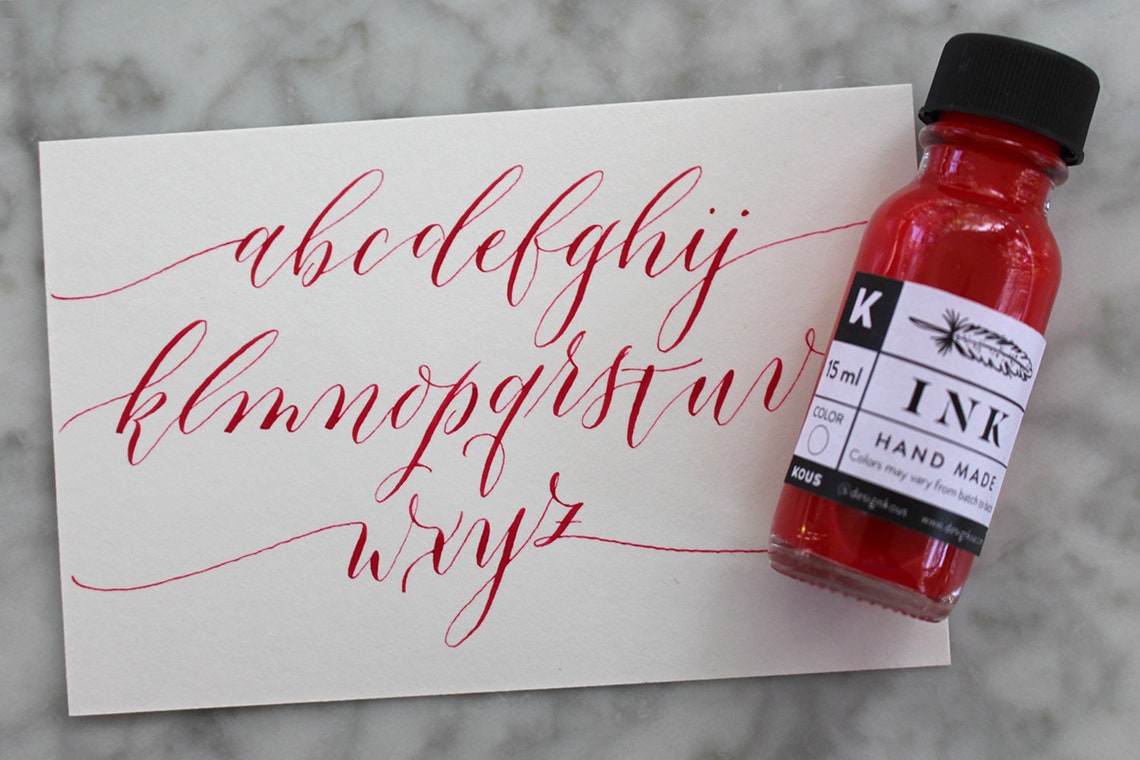 abcdefghij
klmnopqrstuv
wxyz
K
15 ml
COLOR
KOUS
INK
HAND MADE
Colors may vary from batch to batch
@designkous www.designkous.com